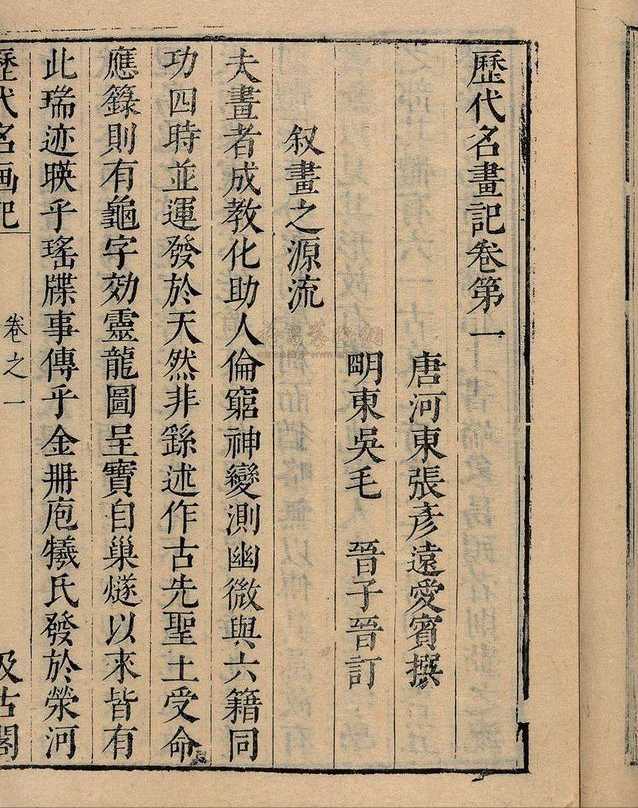 歷代名畫記卷第一
唐河東張彥遠愛賓撰
明東吳毛晉子晉訂
叙畫之源流
夫畫者成教化助人倫窮神變測幽微與六籍同
功四時並運發於天然非繇述作古先聖王受命
應籙則有龜字効靈龍圖呈寶自巢燧以來皆有
此瑞迹暎乎瑤牒事傳乎金冊庖犧氏發於滎河
歷代名画記
卷之一
汲古閣